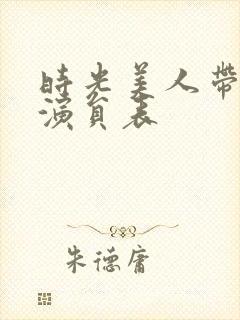 時光美人帶
演員表
朱德庸